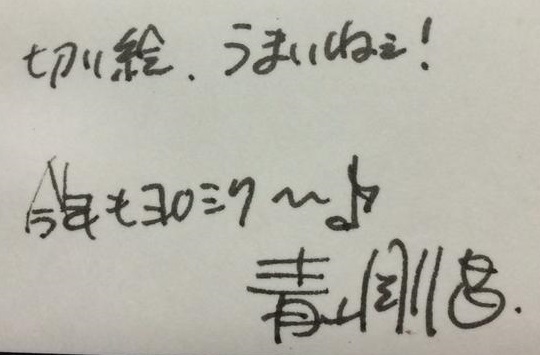 切り絵、うまいねェ!
今年もヨロミク〜♪
青山剛昌.